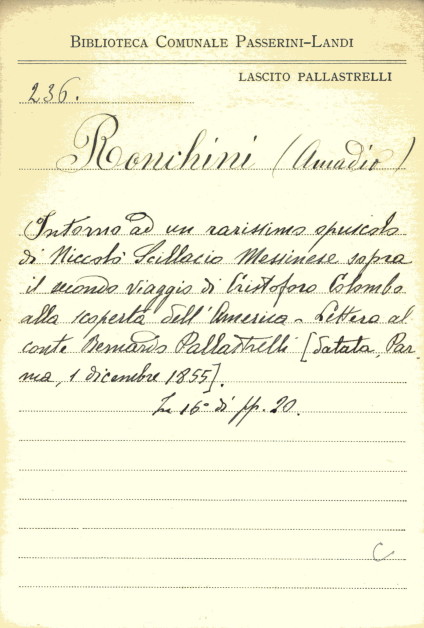 BIBLIOTECA COMUNALE PASSERINI-LANDI
LASCITO PALLASTRELLI
236.
Ronchini (Amadio)
Intorno ad un rarissimo opuscolo
di Niccolò Scillacio Messinese sopra
il secondo viaggio di Cristoforo Colombo
alla scoperta dell'America - Lettera al
conte Bernardo Pallastrelli [datata, Par-
ma, 1 dicembre 1855].
In 16° di pp. 20.
C